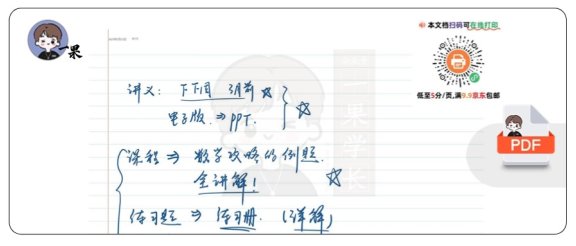 一果
本文档扫码可在线打印
低至5分/页,满9.9京东包邮
讲义: 下下周 3月前 ☆
电子版 ⇒ PPT. ☆
一果学长
课程 ⇒ 数学攻略的例题.
全讲解! ☆
练习题 ⇒ 练习册. (详解)
PDF